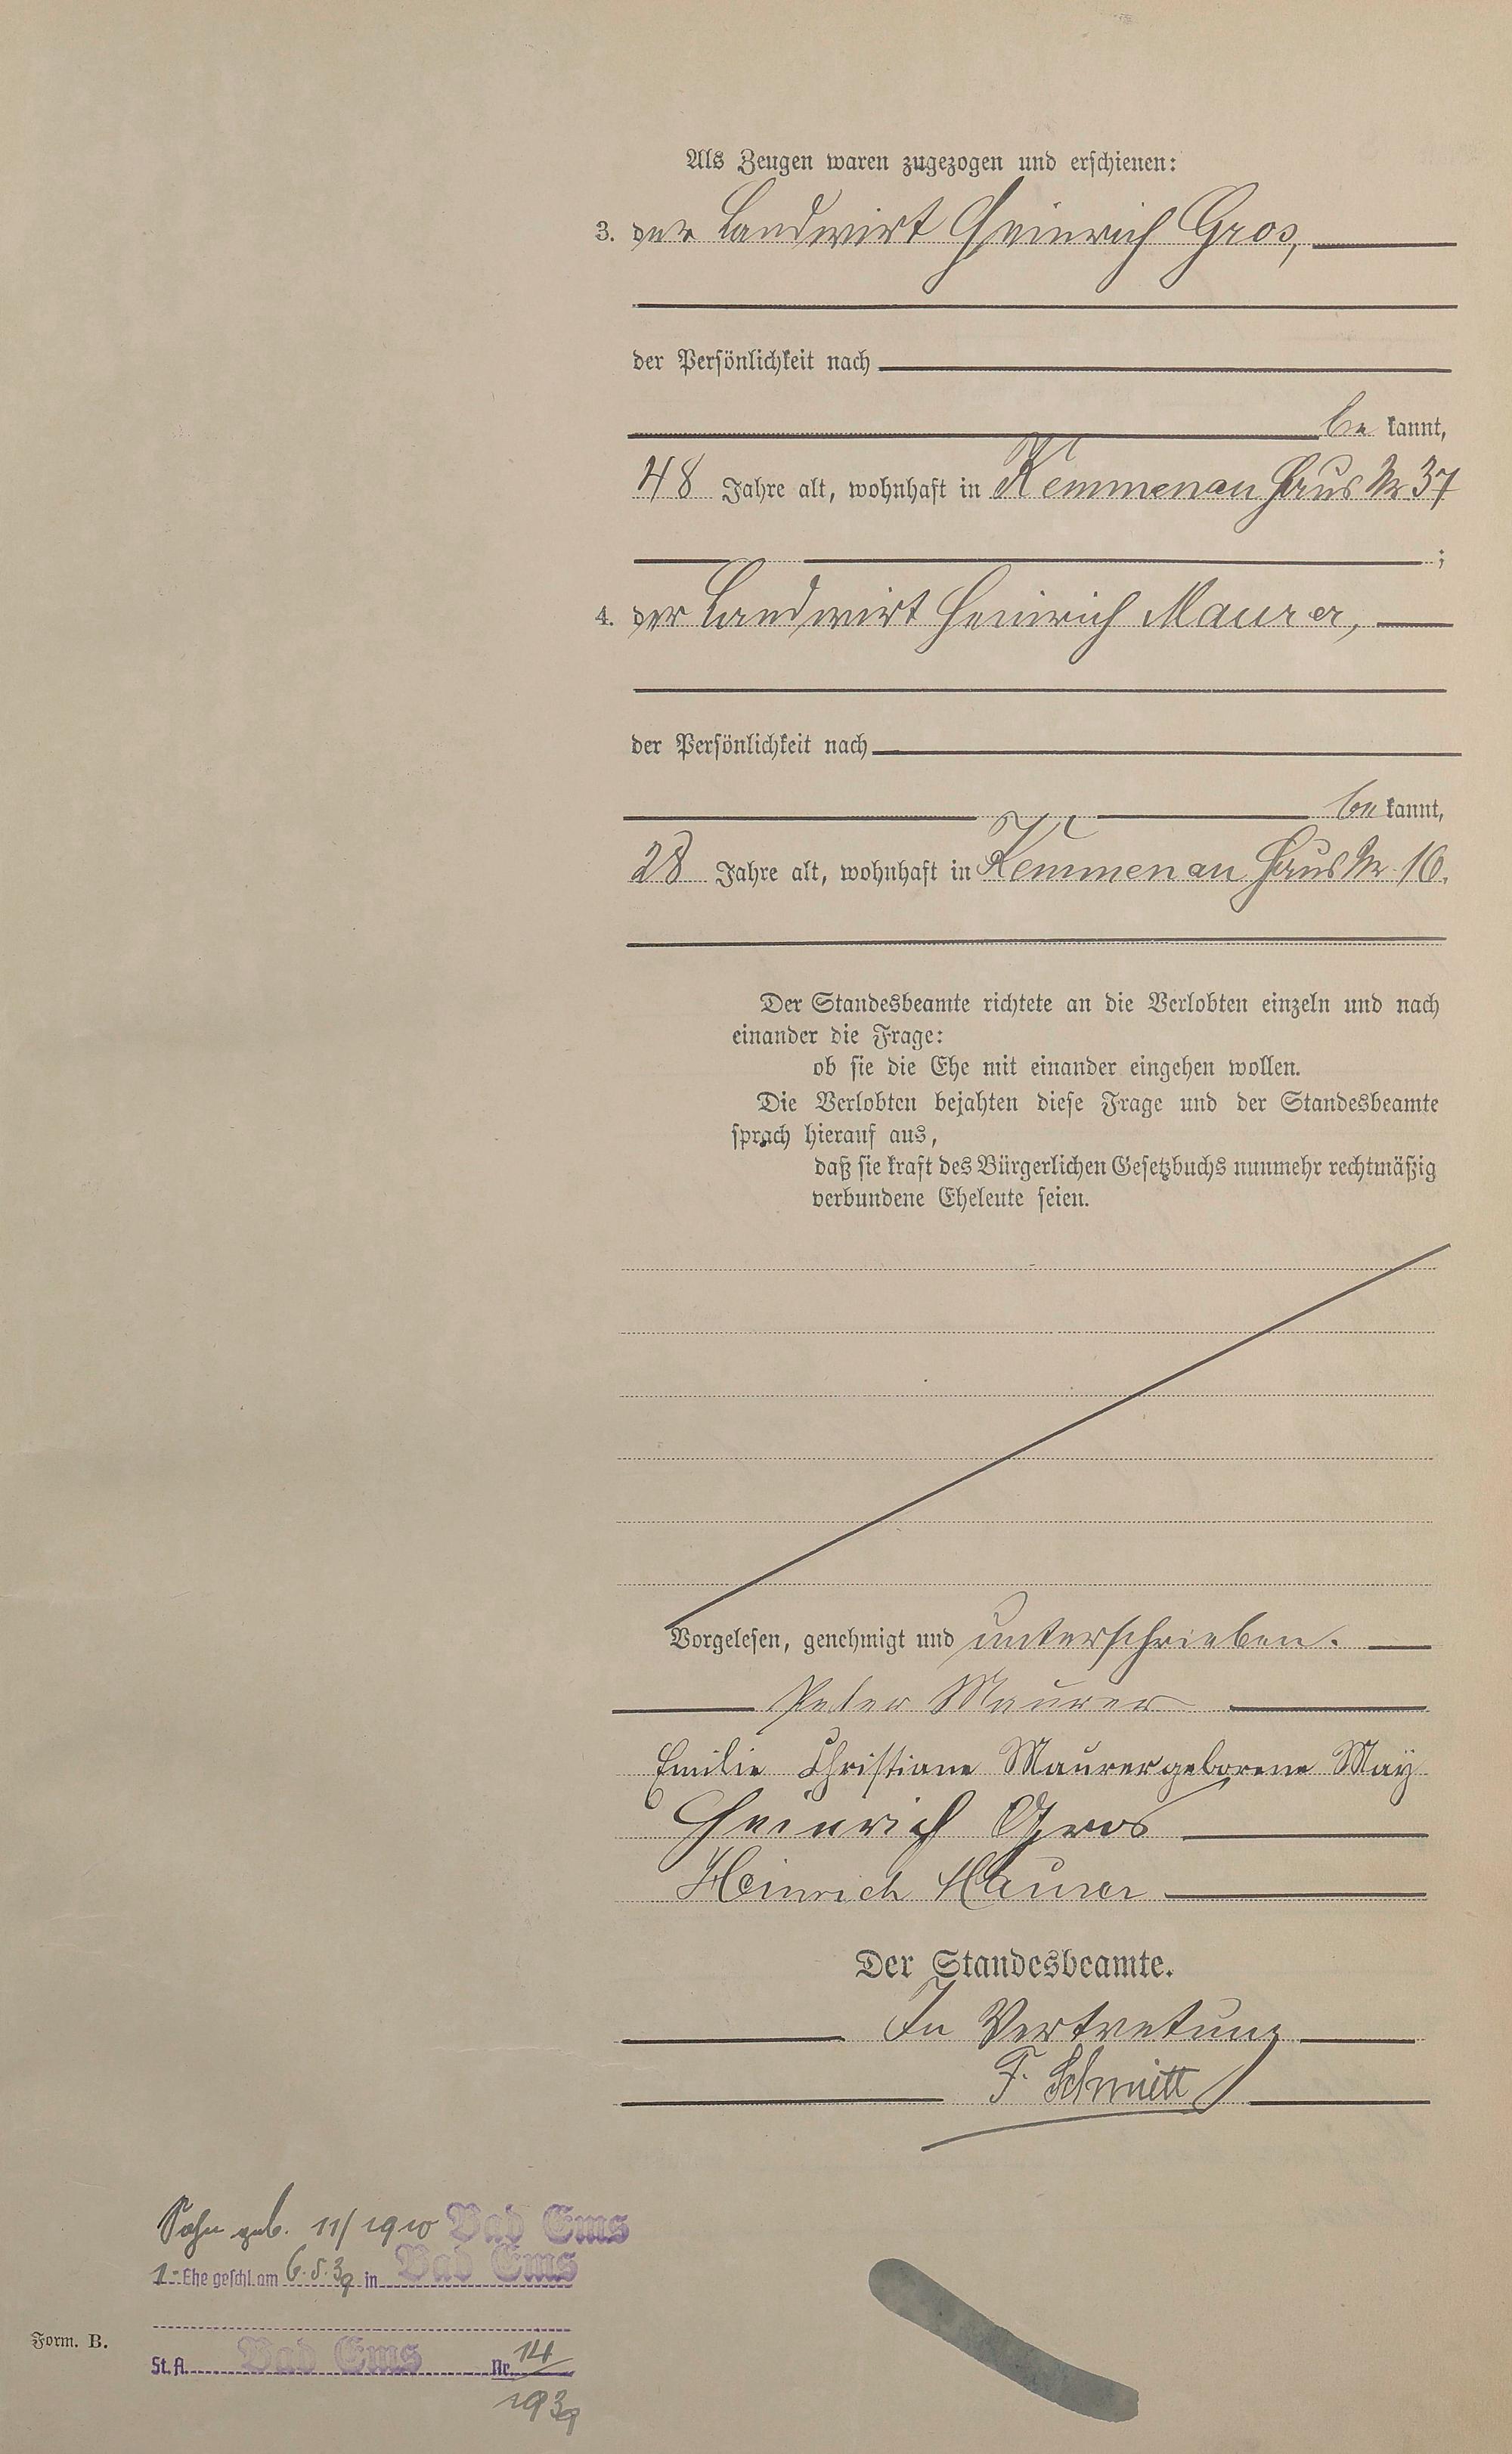 Als Zeugen waren zugezogen und erschienen:
3. der Landwirt Heinrich Gros,
der Persönlichkeit nach
be kannt,
48 Jahre alt, wohnhaft in Kemmenau Haus Nr 37
;
4. der Landwirt Heinrich Maurer,
der Persönlichkeit nach
be kannt,
28 Jahre alt, wohnhaft in Kemmenau Haus Nr. 16.
Der Standesbeamte richtete an die Verlobten einzeln und nach
einander die Frage:
ob sie die Ehe mit einander eingehen wollen.
Die Verlobten bejahten diese Frage und der Standesbeamte
sprach hierauf aus,
daß sie kraft des Bürgerlichen Gesetzbuchs nunmehr rechtmäßig
verbundene Eheleute seien.
Vorgelesen, genehmigt und unterschrieben.
Peter Maurer
Emilie Christiane Maurer geborene May
Heinrich Gros
Heinrich Maurer
Der Standesbeamte.
In Vertretung
F. Schmitt
Sohn geb. 11/1910 Bad Ems
1. Ehe geschl. am 6.5.39 in Bad Ems
Form. B.
St. A. Bad Ems Nr. 14
1939